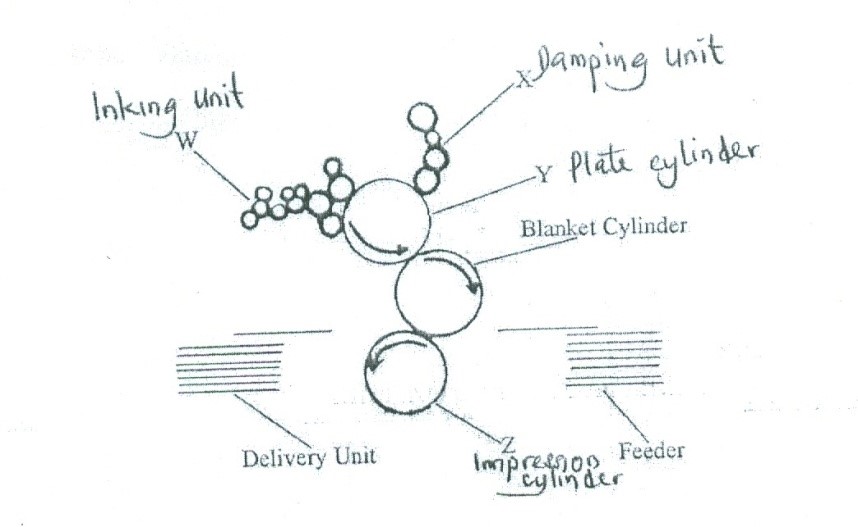 Inking unit
W
X Damping unit
Y Plate cylinder
Blanket Cylinder
Delivery Unit
Z
Impression
cylinder
Feeder